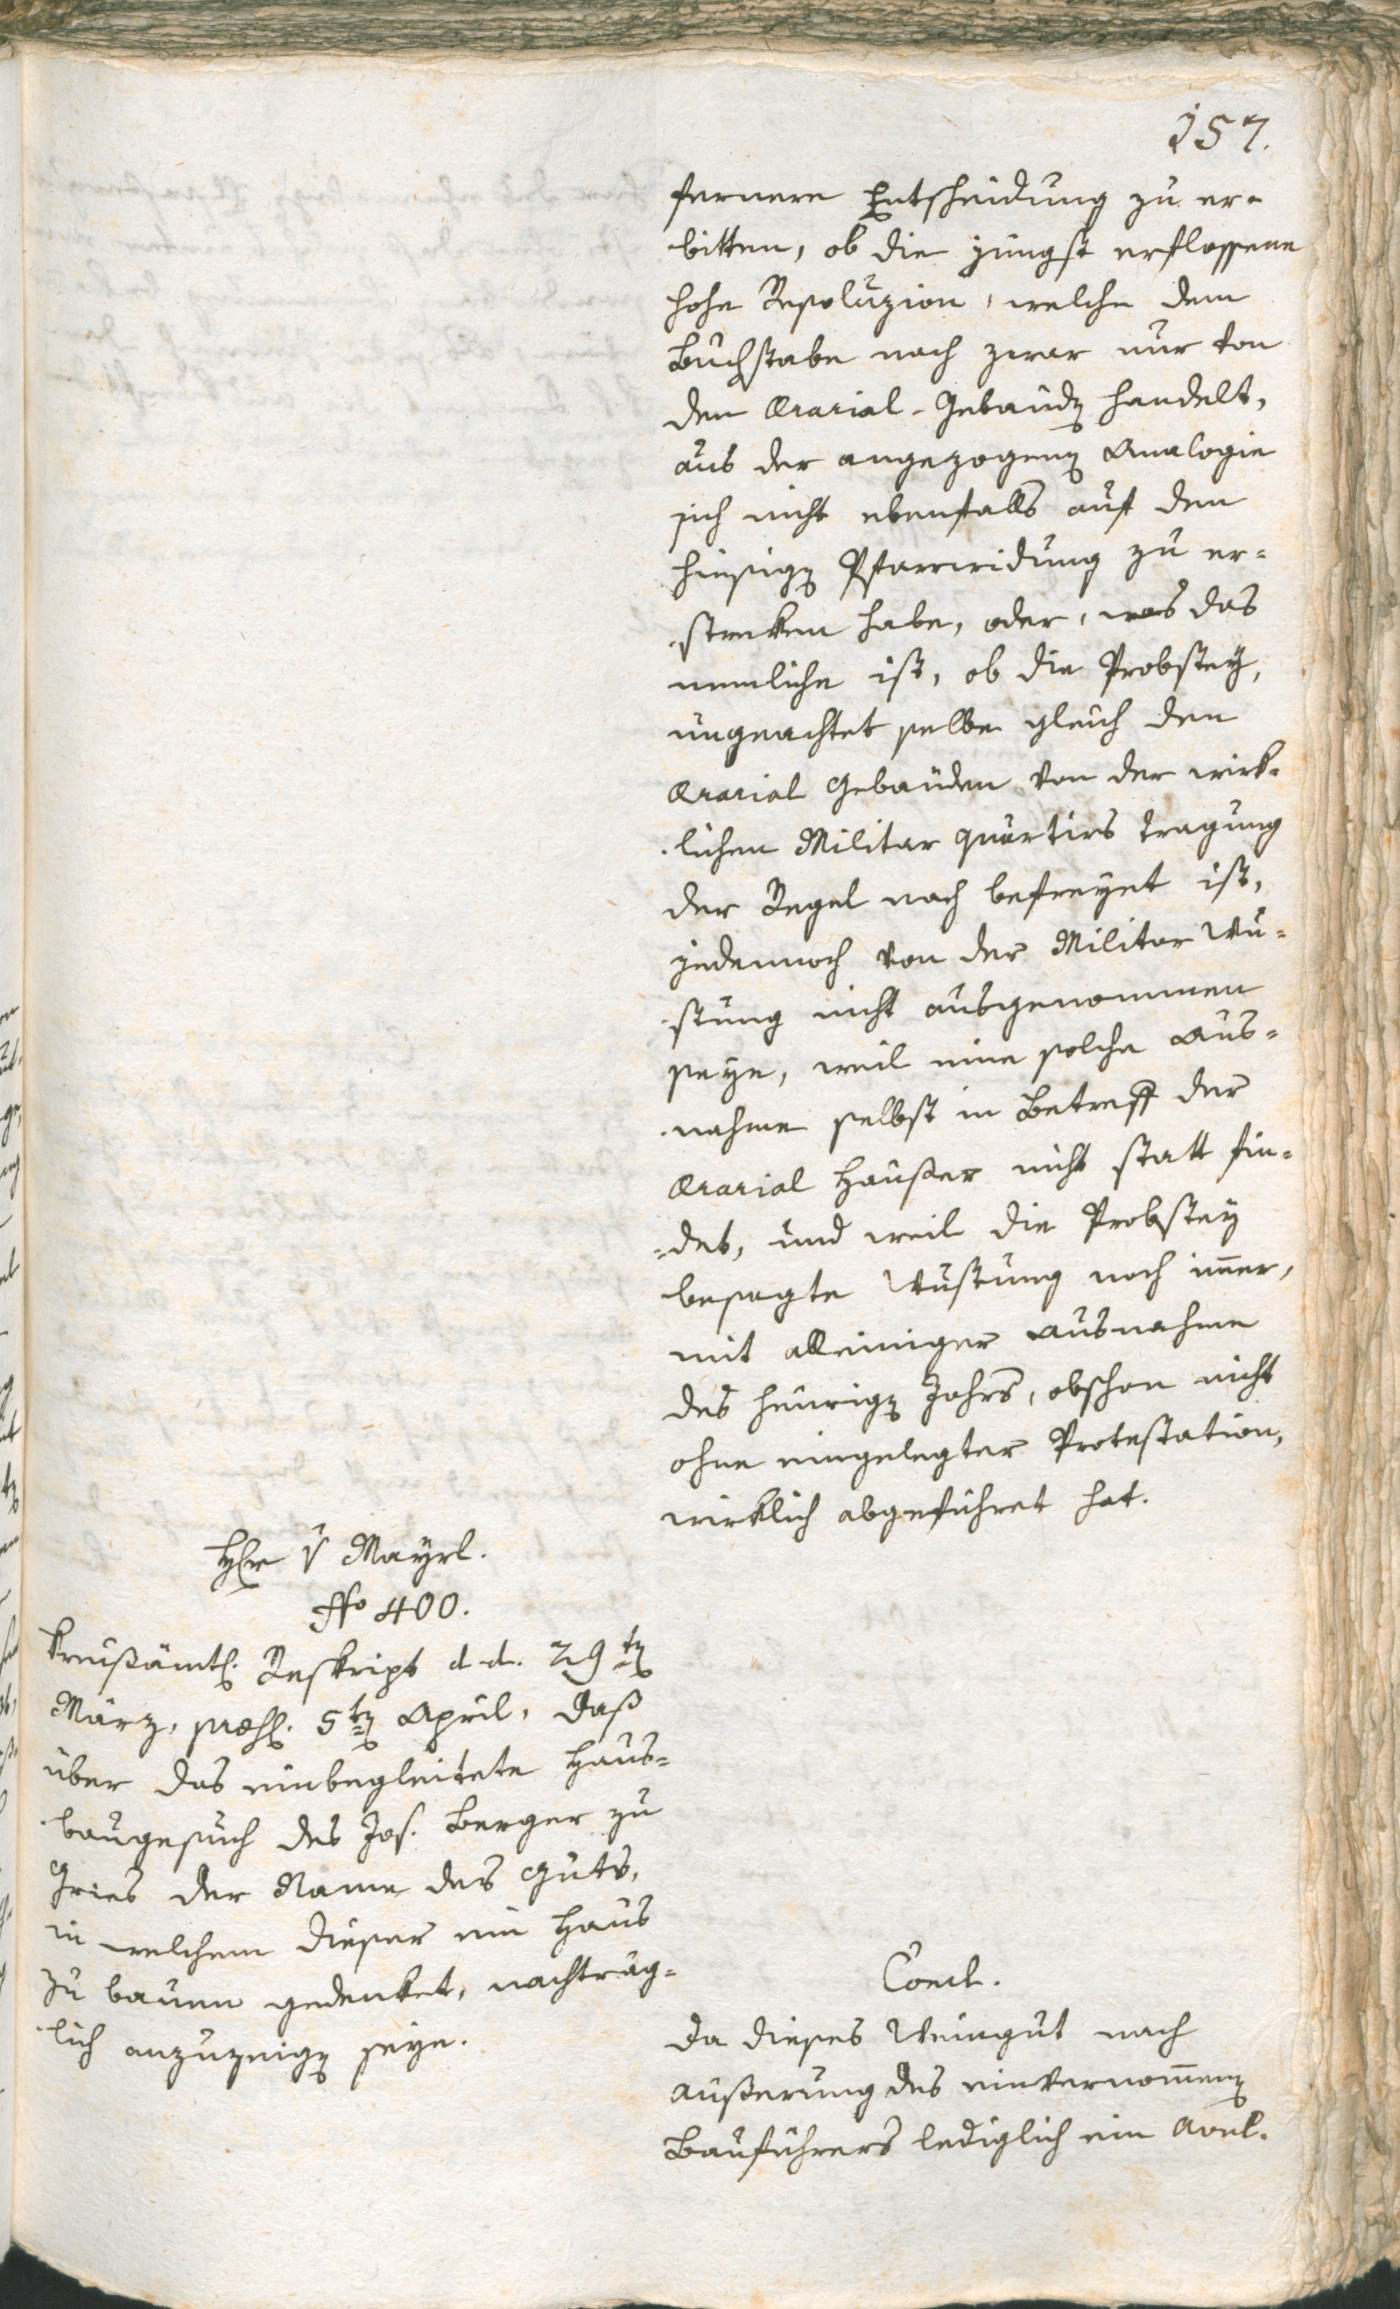 157.
fernere Entscheidung zu er-
bitten, ob die jüngst erflossene
hohe Resoluzion, welche dem
Buchstabe nach zwar nur von
den Ærarial-Gebäudẽ handelt,
aus der angezogenẽ Analogie
sich nicht ebenfalls auf den
hiesigẽ Pfarrwidung zu er-
strecken habe, oder, was das
nemliche ist, ob die Probstey,
ungeachtet selbe gleich den
Ærarial Gebäuden von der wirk-
lichen Militar Quartirs Tragung
der Regel nach befreyet ist,
jedennoch von der Militar Wu-
stung nicht ausgenommen
seye, weil eine solche Aus-
nahme selbst in Betreff der
Ærarial Häußer nicht statt fin-
det, und weil die Probstey
besagte Wustung noch im̅er,
mit alleiniger Ausnahme
des heurigẽ Jahrs, obschon nicht
ohne eingelegter Protestation,
wirklich abgeführet hat.
Hr v Mayrl.
No 400.
Kreußämtl. Reskript d. d. 29tẽ
März, præs. 5tẽ April, daß
über das einbegleitete Haus-
baugesuch des Jos. Berger zu
Gries der Name des Guts,
in welchem dieser ein Haus
zu bauen gedenket, nachträg-
lich anzuzeigẽ seye.
Concl.
Da dieses Weingut nach
Äußerung des einvernom̅enẽ
Bauführers lediglich ein